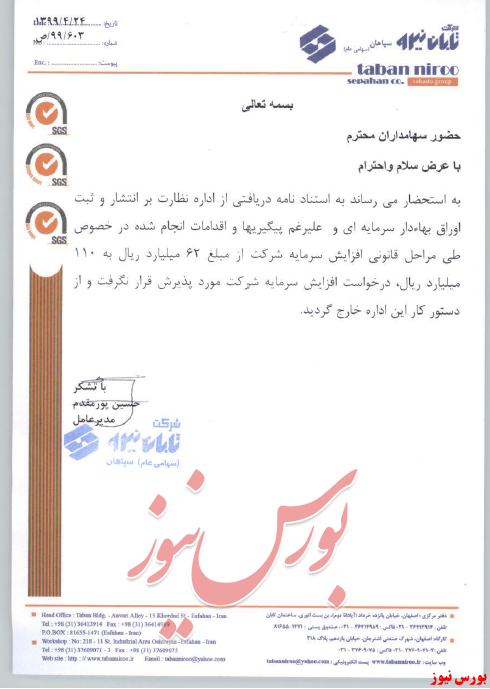 تاریخ: ۱۳۹۹/۴/۲۴ Date
شماره: ص/۹۹/۶۰۳
پیوست: Enc. :
شرکت
تابان نیرو سپاهان (سهامی عام)
taban niroo
sepahan co. tabado group
SGS
SGS
SGS
بسمه تعالی
حضور سهامداران محترم
با عرض سلام واحترام
به استحضار می رساند به استناد نامه دریافتی از اداره نظارت بر انتشار و ثبت
اوراق بهادار سرمایه ای و علیرغم پیگیریها و اقدامات انجام شده در خصوص
طی مراحل قانونی افزایش سرمایه شرکت از مبلغ ۶۲ میلیارد ریال به ۱۱۰
میلیارد ریال، درخواست افزایش سرمایه شرکت مورد پذیرش قرار نگرفت و از
دستور کار این اداره خارج گردید.
با تشکر
حسین پورمقدم
مدیرعامل
شرکت
تابان نیرو
(سهامی عام) سپاهان
بورس نیوز
Head Office : Taban Bldg. - Anvari Alley - 15 Khordad St. - Esfahan - Iran
Tel : +98 (31) 36413914 Fax : +98 (31)
P.O.BOX : 81655-1471 (Esfahan - Iran)
Workshop : No : 218 - 11 St. Industrial Area - Esfahan - Iran
Tel : +98 (31) 37609071 - 3 Fax : +98 (31) 37609075
Web site : http : // www.tabanniroo.ir Email : tabanniroo@yahoo.com
دفتر مرکزی : اصفهان، خیابان پانزده خرداد
کارگاه اصفهان، شهرک صنعتی اشترجان، خیابان یازدهم، پلاک ۲۱۸
وب سایت : www.tabanniroo.ir پست الکترونیکی : tabanniroo@yahoo.com
بورس نیوز